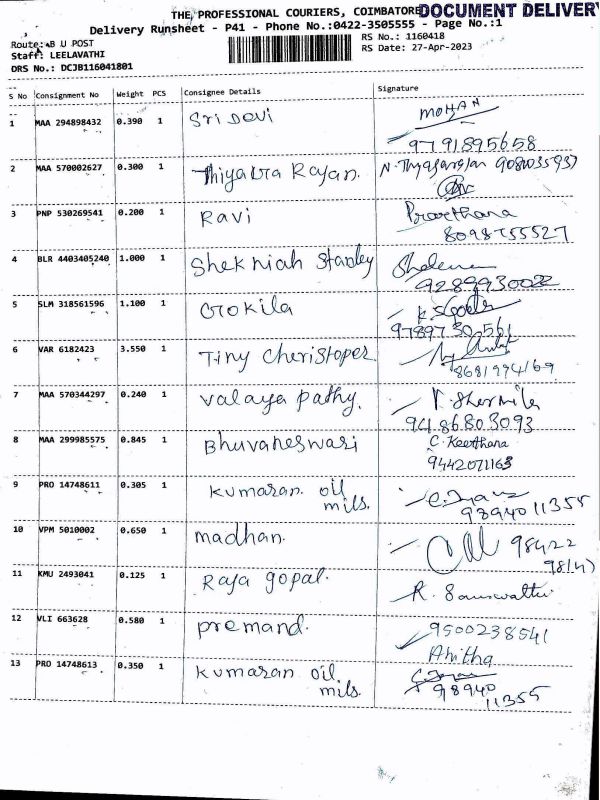 THE PROFESSIONAL COURIERS, COIMBATORE DOCUMENT DELIVERY
Delivery Runsheet - P41 - Phone No.:0422-3505555 - Page No.:1
Route: B U POST
RS No.: 1160418
Staff: LEELAVATHI
RS Date: 27-Apr-2023
DRS No.: DCJB116041801
S No Consignment No Weight PCS Consignee Details Signature
1 MAA 294898432 0.390 1 Sri Devi MOHAN
9791895658
2 MAA 570002627 0.300 1 Thiyagra Rajan. N. Thyagarajan 9080035937
3 PNP 530269541 0.200 1 Ravi Prarthana
8098755527
4 BLR 4403405240 1.000 1 Shekniah Stanley
9289930022
5 SLM 318561596 1.100 1 Gokila
9789730561
6 VAR 6182423 3.550 1 Tiny Cheristoper
8681994169
7 MAA 570344297 0.240 1 Valaya pathy. V. Sharmila
9486803093
8 MAA 299985575 0.845 1 Bhuvaneswari C. Keerthana
9442071163
9 PRO 14748611 0.305 1 Kumaran oil
mils.
9894011355
10 VPM 5010002 0.650 1 madhan. 98422
98147
11 KMU 2493041 0.125 1 Raja gopal. R. Saraswathi
12 VLI 663628 0.580 1 premand. 9500238541
Anitha
13 PRO 14748613 0.350 1 Kumaran oil
mils. 98940
11355